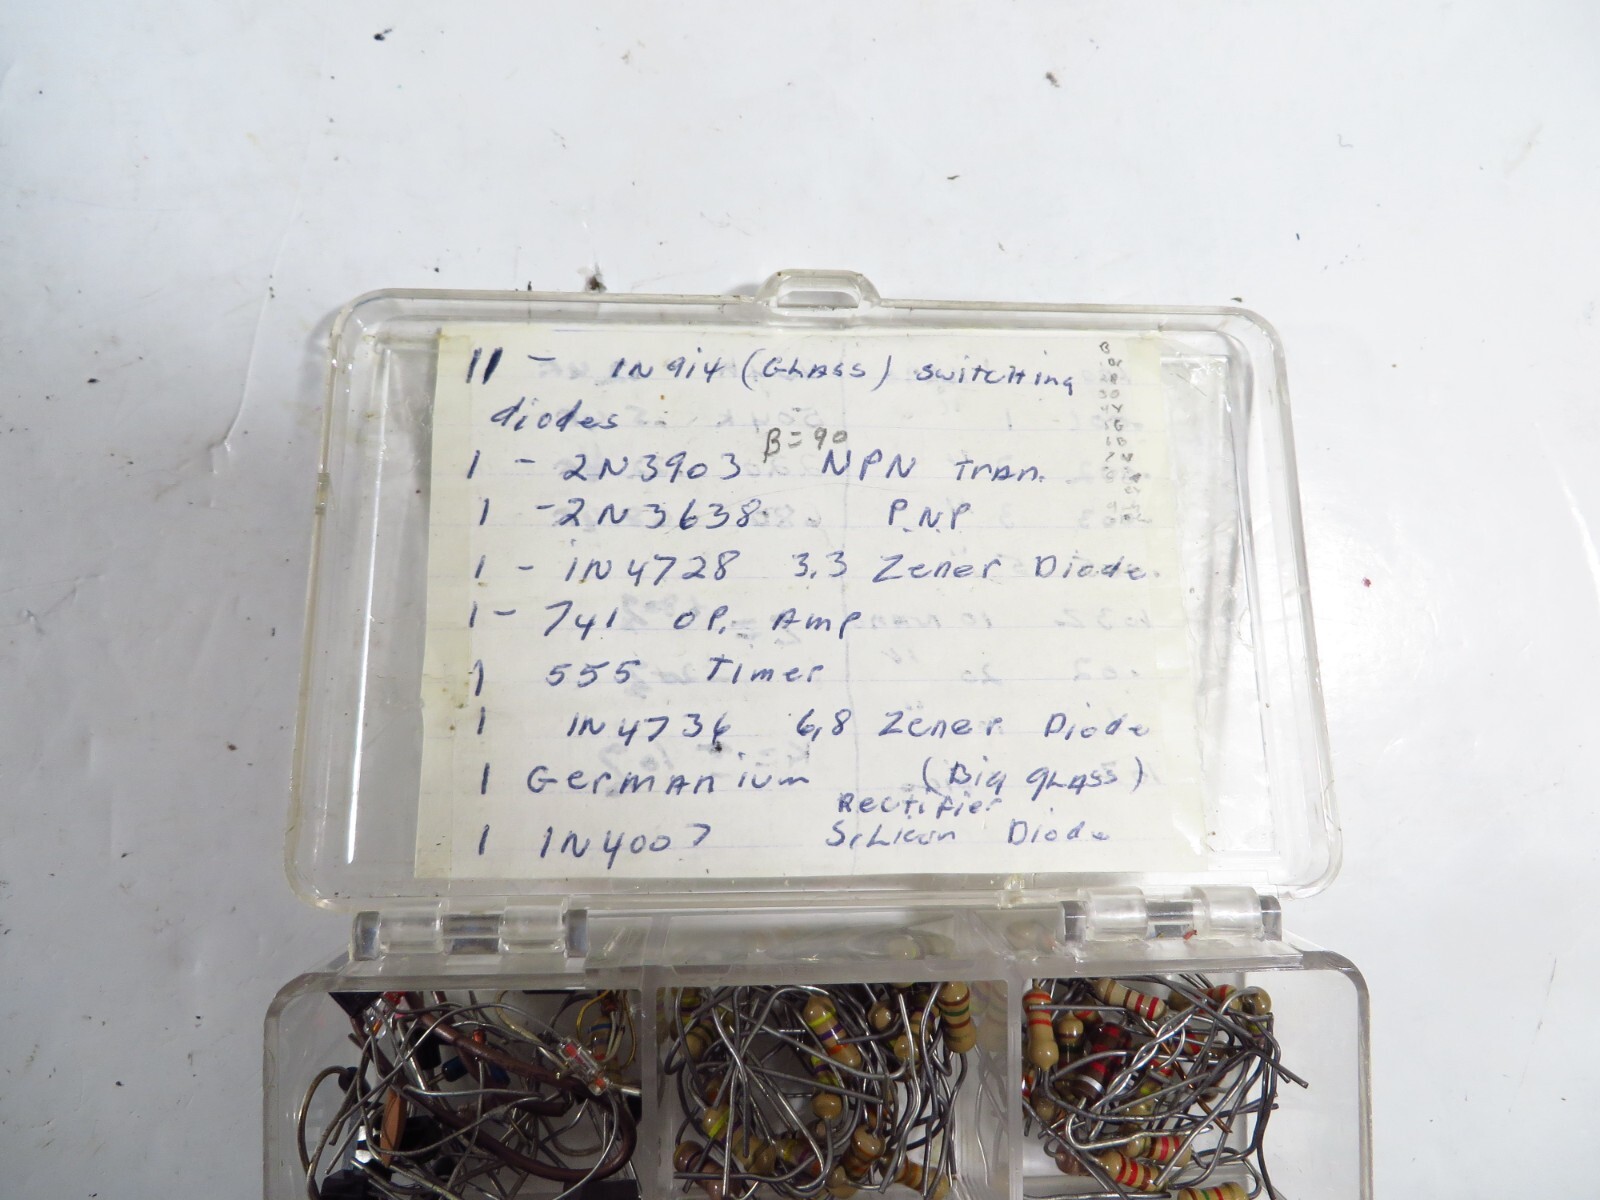 11 - 1N914 (GLASS) switching
diodes
β=90
1 - 2N3903 NPN Tran.
1 - 2N3638 P.N.P
1 - 1N4728 3.3 Zener Diode.
1 - 741 OP. Amp
1 555 Timer
1 1N4736 6,8 Zener Diode
1 Germanium (Big glass)
Rectifier
1 1N4007 Silicon Diode